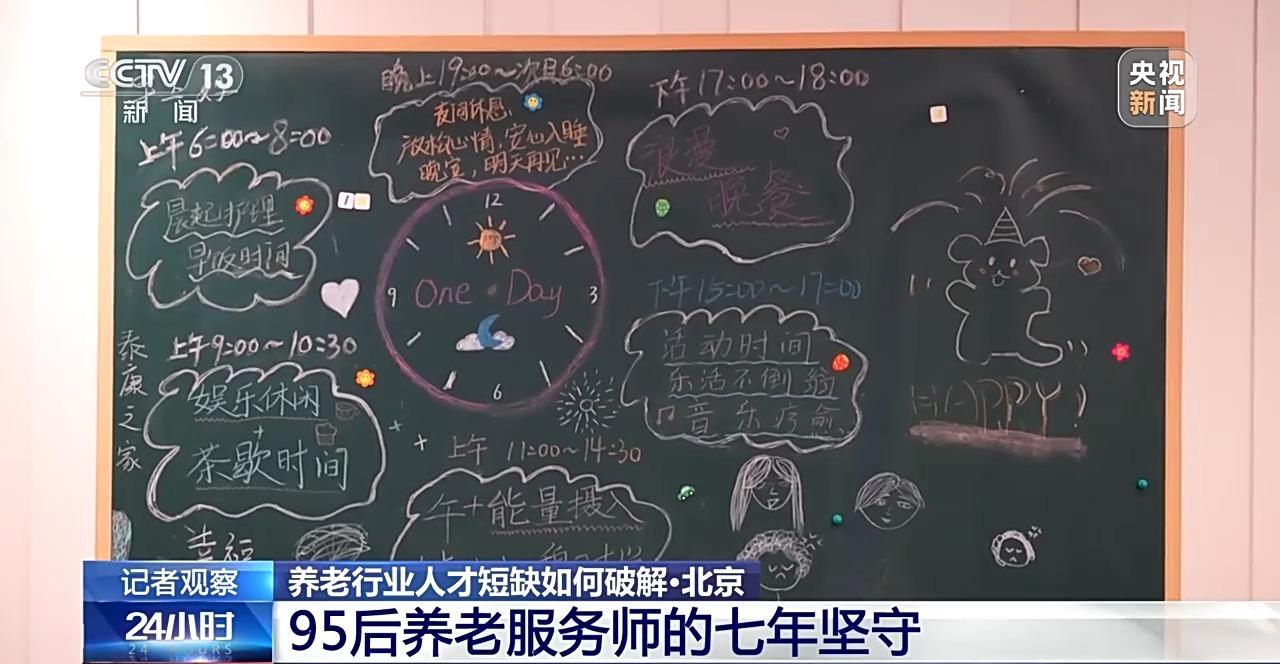 CCTV 13
新闻
央视
新闻
上午6:00~8:00
晨起护理
早饭时间
晚上19:00~次日6:00
夜间休息,
放松心情,安心入睡
晚安,明天再见...
下午17:00~18:00
浪漫
晚餐
12
3
6
9
One Day
下午15:00~17:00
活动时间
乐活不倒翁
音乐疗愈
HAPPY!
泰康之家
上午9:00~10:30
娱乐休闲
+
茶歇时间
上午 11:00~14:30
午+能量摄入
幸福
记者观察
24小时
24 HOURS
养老行业人才短缺如何破解·北京
95后养老服务师的七年坚守